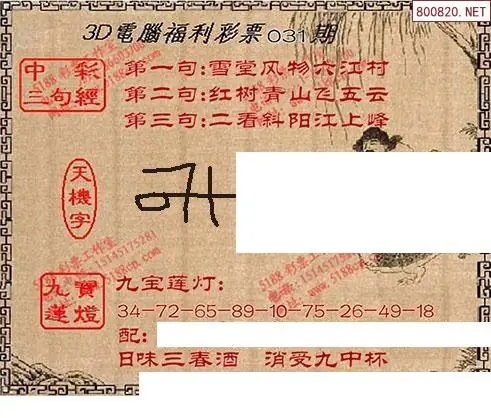 800820.NET
3D電腦福利彩票031期
中彩
三句經
第一句:雪堂风物六江村
第二句:红树青山飞五云
第三句:二看斜阳江上峰
天機字
九寶
蓮燈
九宝莲灯:
34-72-65-89-10-75-26-49-18
配:
日味三春酒 消受九中杯